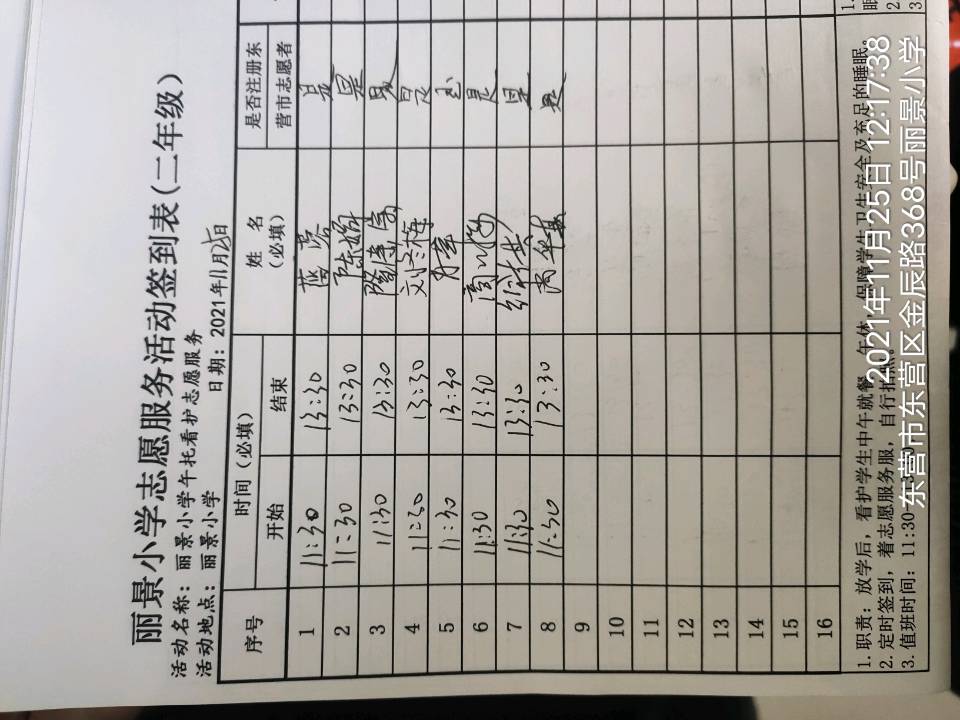 丽景小学志愿服务活动签到表(二年级)
活动名称：丽景小学午托看护志愿服务
活动地点：丽景小学 日期：2021年11月25日
序号 时间(必填) 姓名(必填) 是否注册东营市志愿者
开始 结束
1 11:30 13:30 是
2 11:30 13:30 陈娟 是
3 11:30 13:30 是
4 11:30 13:30 刘兰梅 是
5 11:30 13:30 是
6 11:30 13:30 是
7 11:30 13:30 是
8 11:30 13:30 是
9
10
11
12
13
14
15
16
1.职责：放学后，看护学生中午就餐、午休，保障学生卫生安全及充足的睡眠。
2.定时签到，着志愿服务服，自行拍照。
3.值班时间：11:30
2021年11月25日 12:17:38
东营市东营区金辰路368号丽景小学